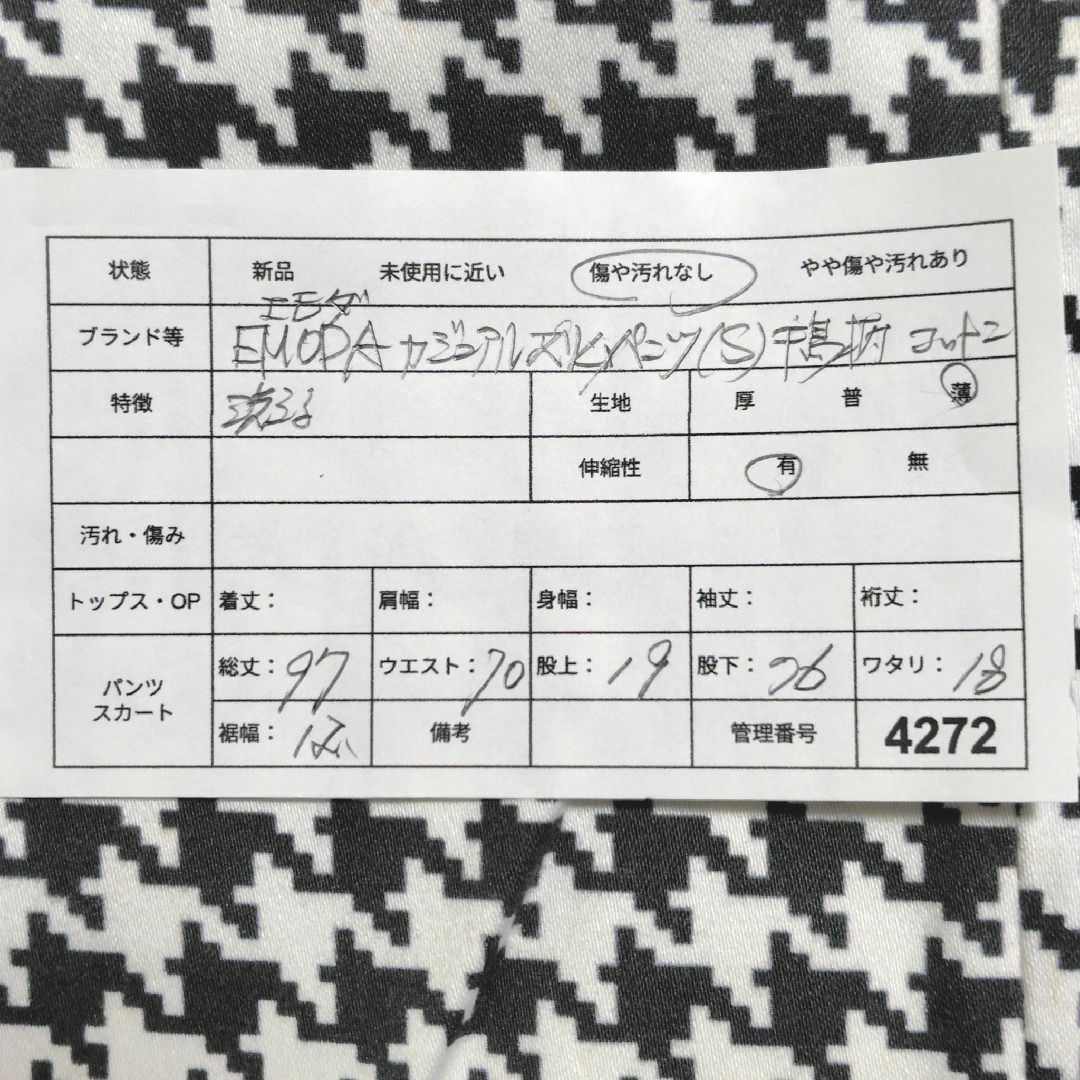 状態 新品 未使用に近い 傷や汚れなし やや傷や汚れあり
エモダ
ブランド等 EMODA カジュアル パンツ(S) 千鳥柄 コットン
特徴 洗える 生地 厚 普 薄
伸縮性 有 無
汚れ・傷み
トップス・OP 着丈: 肩幅: 身幅: 袖丈: 裄丈:
パンツ スカート 総丈: 97 ウエスト: 70 股上: 19 股下: 76 ワタリ: 18
裾幅: 備考 管理番号 4272